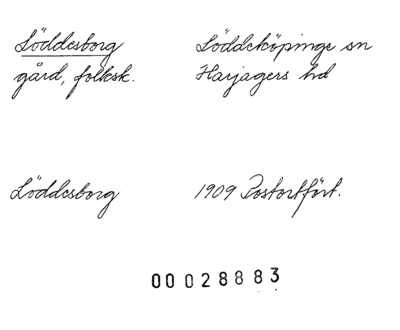 Löddesborg
gård, folksk.
Löddeköpinge sn
Harjagers hd
Löddesborg
1909 Postortfört.
00028883